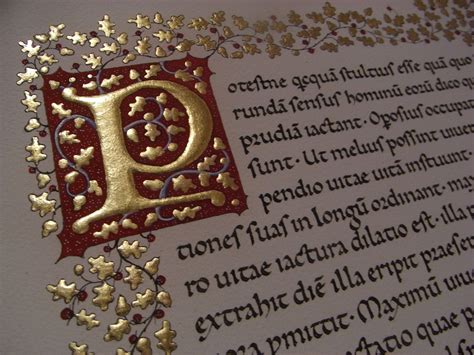 Potestne qcquā stultius esse quā quo
rundā sensus hominū eorū dico
prudiā iactant · Oposius occupa
sunt · Ut melius possint uiue
pendio uitae uitā instuunt ·
tiones suas in longū ordinant · m
ro uitae iactura dilatio est · illa
extrahit diē illa eripit praese
ra pmittit · Maximū uiue
pectatio quae